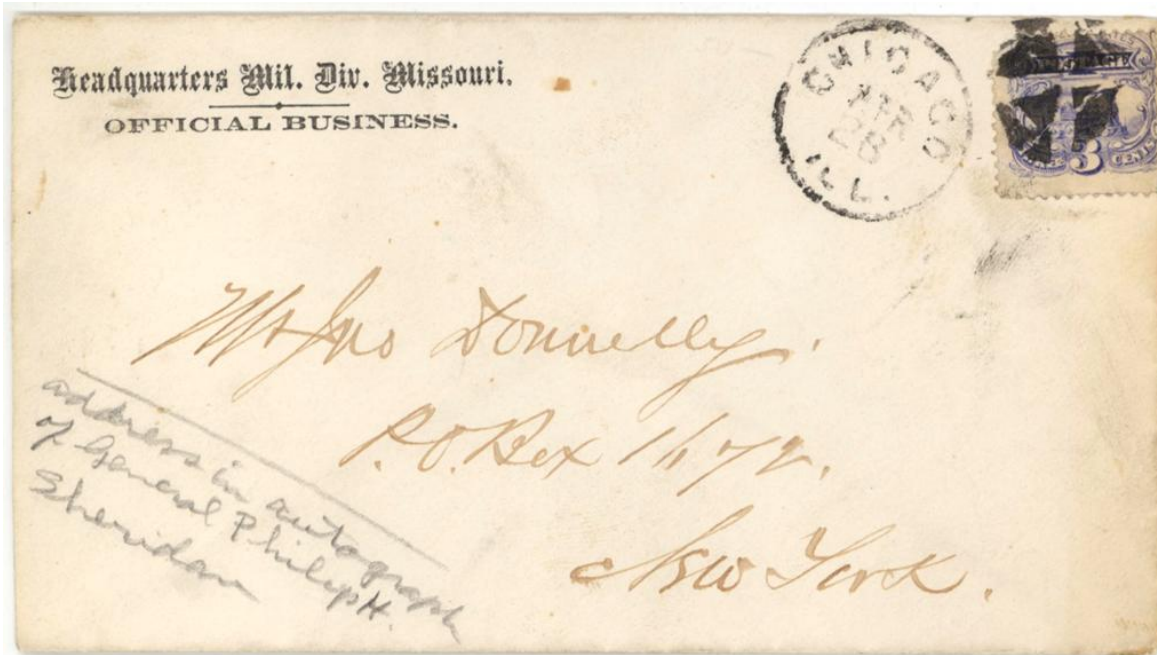 Headquarters Mil. Div. Missouri.
OFFICIAL BUSINESS.
CHICAGO
APR
28
ILL.
POSTAGE
3
Mr Jno Donnelly.
P.O. Box 1672.
New York.
address in autograph
of General Philip H.
Sheridan